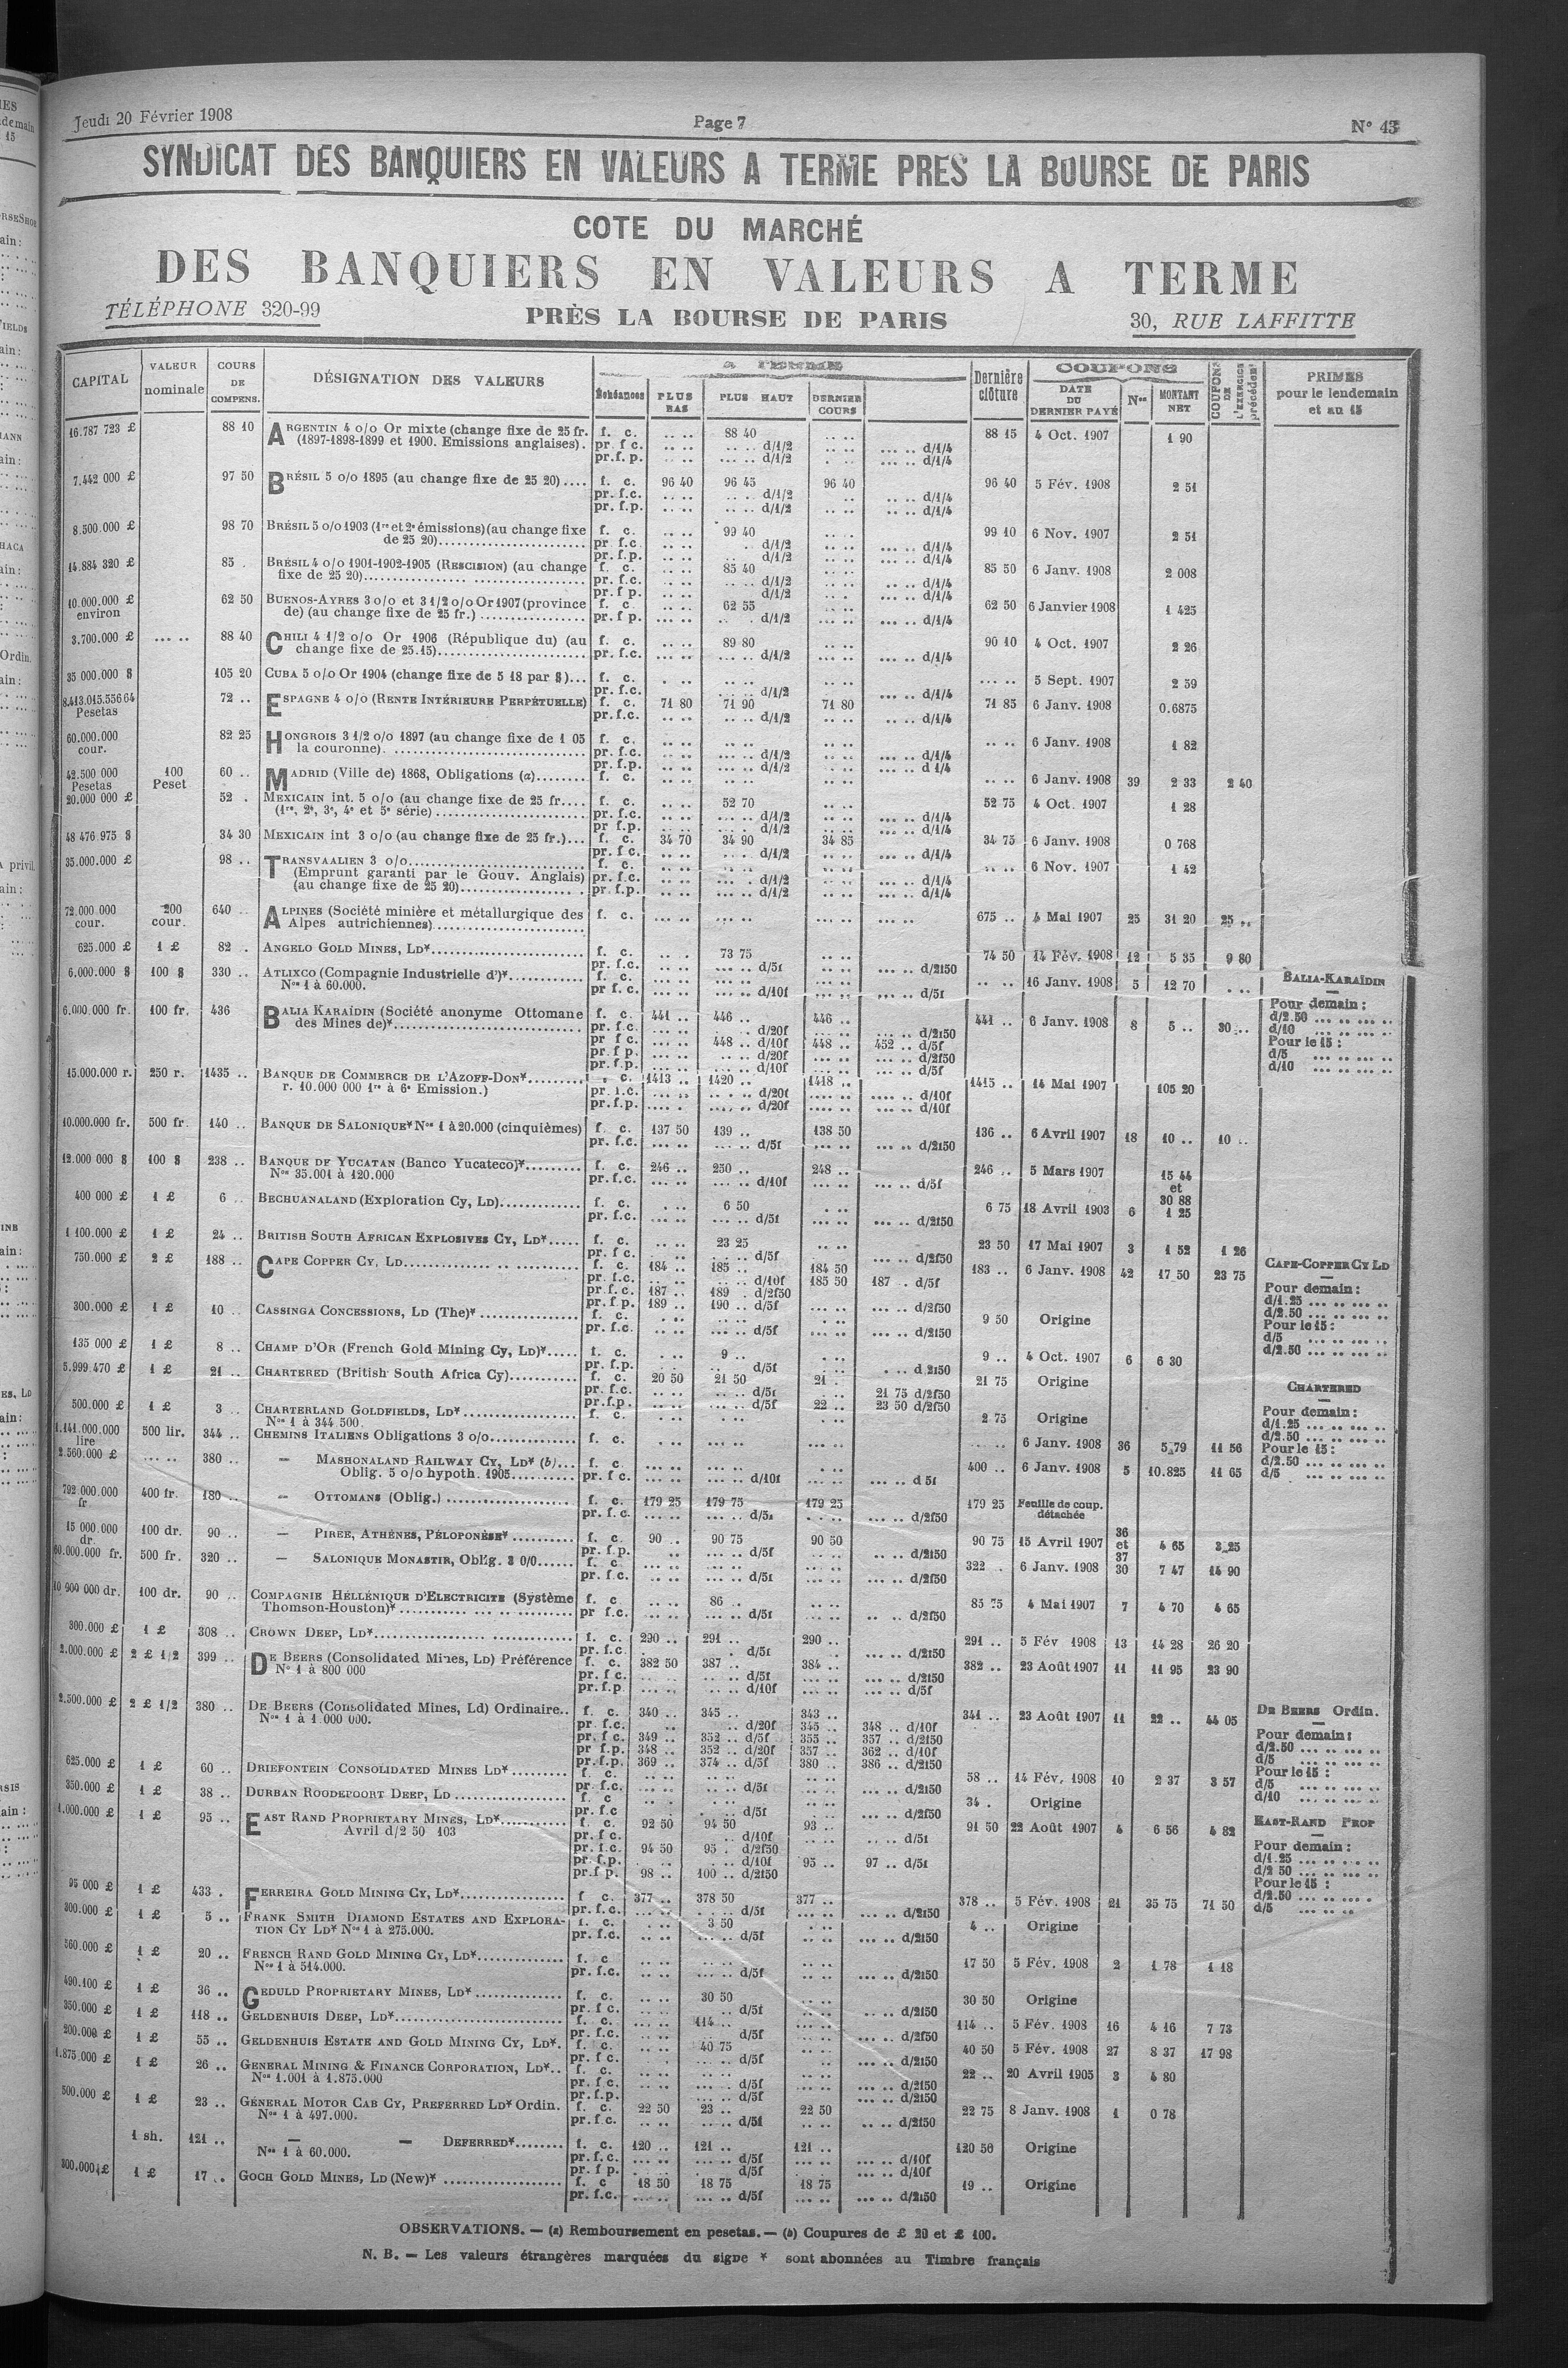 Jeudi 20 Février 1908 Page 7 N° 43
SYNDICAT DES BANQUIERS EN VALEURS A TERME PRES LA BOURSE DE PARIS
COTE DU MARCHÉ
DES BANQUIERS EN VALEURS A TERME
TÉLÉPHONE 320-99 PRÈS LA BOURSE DE PARIS 30, RUE LAFFITTE
CAPITAL VALEUR nominale COURS DE COMPENS. DÉSIGNATION DES VALEURS A TERME Échéances PLUS BAS PLUS HAUT DERNIER COURS Dernière clôture COUPONS DATE DU DERNIER PAYÉ Nos MONTANT NET COUPONS DE L'EXERCICE précédent PRIMES pour le lendemain et au 15
16.787 723 £ 88 10 ARGENTIN 4 o/o Or mixte (change fixe de 25 fr. f. c. .. .. 88 40 .. .. 88 15 4 Oct. 1907 1 90
(1897-1898-1899 et 1900. Emissions anglaises). pr. f c. .. .. .. .. d/1/2 .. .. d/1/4
pr.f. p. .. .. .. .. d/1/2 .. .. d/1/4
7.442 000 £ 97 50 BRÉSIL 5 o/o 1895 (au change fixe de 25 20).... f. c. 96 40 96 45 96 40 96 40 5 Fév. 1908 2 51
pr. f.c. .. .. d/1/2 .. .. d/1/4
pr. f.p. .. .. d/1/2 .. .. d/1/4
8.500.000 £ 98 70 BRÉSIL 5 o/o 1903 (1re et 2e émissions)(au change fixe f. c. 99 40 99 10 6 Nov. 1907 2 51
de 25 20) pr. f.c. d/1/2 d/1/4
pr. f.p. d/1/2 d/1/4
14.884 320 £ 85 . BRÉSIL 4 o/o 1901-1902-1905 (RESCISION) (au change f. c. 85 40 85 50 6 Janv. 1908 2 008
fixe de 25 20) pr. f.c. d/1/2 d/1/4
pr. f p. d/1/2 d/1/4
10.000.000 £ environ 62 50 BUENOS-AYRES 3 o/o et 3 1/2 o/o Or 1907 (province f. c. 62 55 62 50 6 Janvier 1908 1 425
de) (au change fixe de 25 fr.) pr. f p. d/1/2 d/1/4
3.700.000 £ ... .. 88 40 CHILI 4 1/2 o/o Or 1906 (République du) (au f. c. 89 80 90 10 4 Oct. 1907 2 26
change fixe de 25.15) pr. f.c. d/1/2 d/1/4
35 000.000 $ 105 20 CUBA 5 o/o Or 1904 (change fixe de 5 18 par $)... f. c. 5 Sept. 1907 2 59
pr. f.c. d/1/2 d/1/4
8.413.015.556 64 Pesetas 72 .. ESPAGNE 4 o/o (RENTE INTÉRIEURE PERPÉTUELLE) f. c. 71 80 71 90 71 80 71 85 6 Janv. 1908 0.6875
pr. f.c. d/1/2 d/1/4
60.000.000 cour. 82 25 HONGROIS 3 1/2 o/o 1897 (au change fixe de 1 05 f. c. 6 Janv. 1908 1 82
la couronne). pr. f.c. d/1/2 d/1/4
pr. f.p. d/1/2 d 1/4
42.500 000 Pesetas 100 Peset 60 .. MADRID (Ville de) 1868, Obligations (a) f. c. 6 Janv. 1908 39 2 33 2 40
20.000 000 £ 52 . MEXICAIN int. 5 o/o (au change fixe de 25 fr.... f. c. 52 70 52 75 4 Oct. 1907 1 28
(1re, 2e, 3e, 4e et 5e série) pr. f.c. d/1/2 d/1/4
pr f.p. d/1/2 d/1/4
48 476 975 $ 34 30 MEXICAIN int 3 o/o (au change fixe de 25 fr.)... f. c. 34 70 34 90 34 85 34 75 6 Janv. 1908 0 768
pr. f c. d/1/2 d/1/4
35.000.000 £ 98 .. TRANSVAALIEN 3 o/o f. c. 6 Nov. 1907 1 42
(Emprunt garanti par le Gouv. Anglais) pr. f.c. d/1/2 d/1/4
(au change fixe de 25 20) pr. f.p. d/1/2 d/1/4
72.000.000 cour. 200 cour. 640 .. ALPINES (Société minière et métallurgique des f. c. 675 .. 4 Mai 1907 25 31 20 25 ..
Alpes autrichiennes)
625.000 £ 1 £ 82 . ANGELO GOLD MINES, LD* f. c. 73 75 74 50 14 Fév. 1908 12 5 35 9 80
pr. f.c. d/5f d/2f50
6.000.000 $ 100 $ 330 .. ATLIXCO (Compagnie Industrielle d')* f. c. 16 Janv. 1908 5 12 70
Nos 1 à 60.000. pr f. c. d/10f d/5f
BALIA-KARAÏDIN
6.000.000 fr. 100 fr. 436 BALIA KARAÏDIN (Société anonyme Ottomane f. c. 441 .. 446 .. 446 .. 441 .. 6 Janv. 1908 8 5 .. 30 ..
des Mines de)* pr. f c. d/20f d/2f50
pr f c. 448 .. d/10f 448 .. 452 .. d/5f
pr. f p. d/20f d/2f50
pr. f.p. d/10f d/5f
Pour demain :
d/2.50
d/10
Pour le 15 :
d/5
d/10
15.000.000 r. 250 r. 1435 .. BANQUE DE COMMERCE DE L'AZOFF-DON* c. 1413 .. 1420 .. 1418 .. 1415 .. 14 Mai 1907 105 20
r. 10.000 000 1re à 6e Emission.) pr. f.c. d/20f d/10f
pr. f.p. d/20f d/10f
10.000.000 fr. 500 fr. 140 .. BANQUE DE SALONIQUE* Nos 1 à 20.000 (cinquièmes) f. c. 137 50 139 .. 138 50 136 .. 6 Avril 1907 18 10 .. 10 ..
pr. f.c. d/5f d/2f50
12.000 000 $ 100 $ 238 .. BANQUE DE YUCATAN (Banco Yucateco)* f. c. 246 .. 250 .. 248 .. 246 .. 5 Mars 1907 15 44 et 30 88
Nos 35.001 à 120.000 pr. f.c. d/10f d/5f
400 000 £ 1 £ 6 .. BECHUANALAND (Exploration Cy, LD) f. c. 6 50 6 75 18 Avril 1903 6 1 25
pr. f.c. d/5f d/2f50
1 100.000 £ 1 £ 24 .. BRITISH SOUTH AFRICAN EXPLOSIVES CY, LD* f. c. 23 25 23 50 17 Mai 1907 3 1 52 1 26
pr. f c. d/5f d/2f50
750.000 £ 2 £ 188 .. CAPE COPPER CY, LD f. c. 184 .. 185 .. 184 50 183 .. 6 Janv. 1908 42 17 50 23 75
pr. f.c. d/10f 185 50 187 . d/5f
pr. f.c. 187 .. 189 . d/2f50
pr. f p. 189 .. 190 .. d/5f d/2f50
CAPE-COPPER CY LD
Pour demain :
d/1.25
d/2.50
Pour le 15 :
d/5
d/2.50
300.000 £ 1 £ 10 .. CASSINGA CONCESSIONS, LD (The)* f. c. 9 50 Origine
pr. f.c. d/5f d/2f50
135 000 £ 1 £ 8 .. CHAMP D'OR (French Gold Mining Cy, LD)* f. c. 9 .. 9 .. 4 Oct. 1907 6 6 30
pr. f.p. d/5f d.2f50
5.999.470 £ 1 £ 21 .. CHARTERED (British South Africa Cy) f. c. 20 50 21 50 21 . 21 75 Origine
pr. f.c. d/5f 21 75 d/2f50
pr. f.p. d/5f 22 .. 23 50 d/2f50
CHARTERED
Pour demain :
d/1.25
d/2.50
Pour le 15 :
d/2.50
d/5
500.000 £ 1 £ 3 .. CHARTERLAND GOLDFIELDS, LD* f. c. 2 75 Origine
Nos 1 à 344 500.
1.141.000.000 lire 500 lir. 344 .. CHEMINS ITALIENS Obligations 3 o/o f. c. 6 Janv. 1908 36 5.79 11 56
2.560.000 £ ... .. 380 .. — MASHONALAND RAILWAY CY, LD* (b)... f. c 400 .. 6 Janv. 1908 5 10.825 11 65
Oblig. 5 o/o hypoth. 1905 pr. f c. d/10f d 5f
792.000.000 fr 400 fr. 180 .. — OTTOMANS (Oblig.) f. c. 179 25 179 75 179 25 179 25 Feuille de coup. détachée
pr. f.c. d/5f d/2f50
15 000.000 dr. 100 dr. 90 .. — PIREE, ATHÈNES, PÉLOPONÈSE* f. c. 90 .. 90 75 90 50 90 75 15 Avril 1907 36 et 37 4 65 3.25
pr. f.p. d/5f d/2f50
60.000.000 fr. 500 fr. 320 .. — SALONIQUE MONASTIR, Oblig. 3 0/0 f. c 322 .. 6 Janv. 1908 30 7 47 14 90
pr. f.c. d/5f d/2f50
10 900 000 dr. 100 dr. 90 .. COMPAGNIE HELLÉNIQUE D'ELECTRICITE (Système f. c 86 .. 85 75 4 Mai 1907 7 4 70 4 65
Thomson-Houston)* pr f.c. d/5f d/2f50
300.000 £ 1 £ 308 .. CROWN DEEP, LD* f. c. 290 .. 291 .. 290 .. 291 .. 5 Fév 1908 13 14 28 26 20
pr. f.c. d/5f d/2f50
2.000.000 £ 2 £ 1/2 399 .. DE BEERS (Consolidated Mines, LD) Préférence f. c. 382 50 387 .. 384 .. 382 .. 23 Août 1907 11 11 95 23 90
N° 1 à 800 000 pr. f c. d/5f d/2f50
pr. f.p. d/10f d/5f
2.500.000 £ 2 £ 1/2 380 .. DE BEERS (Consolidated Mines, Ld) Ordinaire.. f. c. 340 .. 345 .. 343 .. 341 .. 23 Août 1907 11 22 .. 44 05
Nos 1 à 1.000 000. pr. f.c. d/20f 345 .. 348 .. d/10f
pr. f.c. 349 .. 352 .. d/5f 355 .. 357 .. d/2f50
pr f.p. 348 .. 352 .. d/20f 357 .. 362 .. d/10f
pr. f.p. 369 .. 374 .. d/5f 380 .. 386 .. d/2f50
DE BEERS Ordin.
Pour demain :
d/2.50
d/5
Pour le 15 :
d/5
d/10
625.000 £ 1 £ 60 .. DRIEFONTEIN CONSOLIDATED MINES LD* f. c. 58 .. 14 Fév. 1908 10 2 37 3 57
pr. f.c. d/5f d/2f50
350.000 £ 1 £ 38 .. DURBAN ROODEPOORT DEEP, LD f. c 34 . Origine
pr. f.c d/5f d/2f50
1.000.000 £ 1 £ 95 .. EAST RAND PROPRIETARY MINES, LD* f. c. 92 50 94 50 93 .. 91 50 22 Août 1907 4 6 56 4 82
Avril d/2 50 103 pr. f c. d/10f d/5f
pr. f.c. 94 50 95 . d/2f50
pr. f.p. d/10f 95 .. 97 .. d/5f
pr. f p. 98 .. 100 .. d/2f50
EAST-RAND PROP
Pour demain :
d/1 25
d/2 50
Pour le 15 :
d/2.50
d/5
95 000 £ 1 £ 433 . FERREIRA GOLD MINING CY, LD* f c. 377 .. 378 50 377 .. 378 .. 5 Fév. 1908 21 35 75 71 50
pr. f.c. d/5f d/2f50
300.000 £ 1 £ 5 .. FRANK SMITH DIAMOND ESTATES AND EXPLORA- f. c. 3 50 4 .. Origine
TION CY LD* Nos 1 à 275.000. pr. f.c. d/5f d/2f50
560.000 £ 1 £ 20 .. FRENCH RAND GOLD MINING CY, LD* f. c 17 50 5 Fév. 1908 2 1 78 1 18
Nos 1 à 514.000. pr. f.c. d/5f d/2f50
490.100 £ 1 £ 36 .. GEDULD PROPRIETARY MINES, LD* f. c. 30 50 30 50 Origine
pr. f c. d/5f d/2f50
350.000 £ 1 £ 118 .. GELDENHUIS DEEP, LD* f. c. 114 .. 114 .. 5 Fév. 1908 16 4 16 7 73
pr. f.c. d/5f d/2f50
200.000 £ 1 £ 55 .. GELDENHUIS ESTATE AND GOLD MINING CY, LD*. f. c. 40 75 40 50 5 Fév. 1908 27 8 37 17 98
pr. f c. d/5f d/2f50
1.875.000 £ 1 £ 26 .. GENERAL MINING & FINANCE CORPORATION, LD*.. f. c. 22 .. 20 Avril 1905 3 4 80
Nos 1.001 à 1.875.000 pr. f.c. d/5f d/2f50
pr. f.p. d/5f d/2f50
500.000 £ 1 £ 23 .. GÉNERAL MOTOR CAB CY, PREFERRED LD* Ordin. f. c. 22 50 23 .. 22 50 22 75 8 Janv. 1908 1 0 78
Nos 1 à 497.000. pr. f.c. d/5f d/2f50
1 sh. 121 .. — — DEFERRED* f. c. 120 .. 121 .. 121 .. 120 50 Origine
Nos 1 à 60.000. pr. f. c. d/5f d/10f
pr. f p. d/5f d/10f
300.000 £ 1 £ 17 .. GOCH GOLD MINES, LD (New)* f. c 18 50 18 75 18 75 19 .. Origine
pr. f.c. d/5f d/2f50
OBSERVATIONS. — (a) Remboursement en pesetas. — (b) Coupures de £ 20 et £ 100.
N. B. — Les valeurs étrangères marquées du signe * sont abonnées au Timbre français